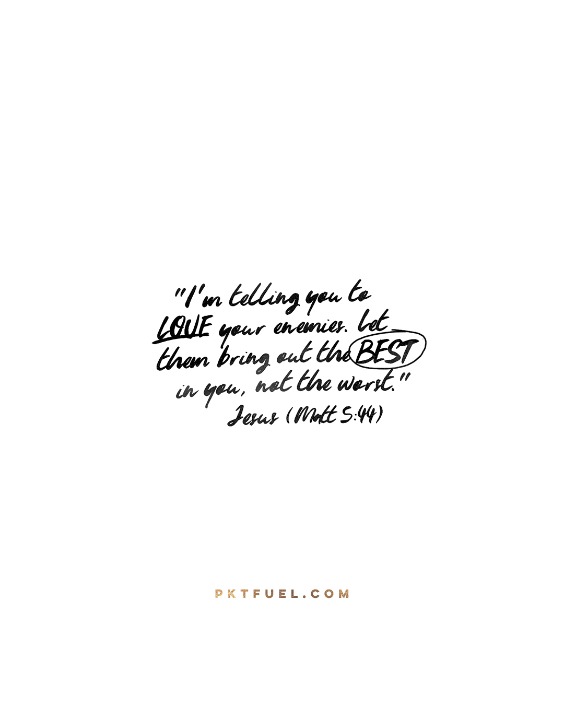 "I'm telling you to
LOVE your enemies. Let
them bring out the BEST
in you, not the worst."
Jesus (Matt 5:44)
PKTFUEL.COM